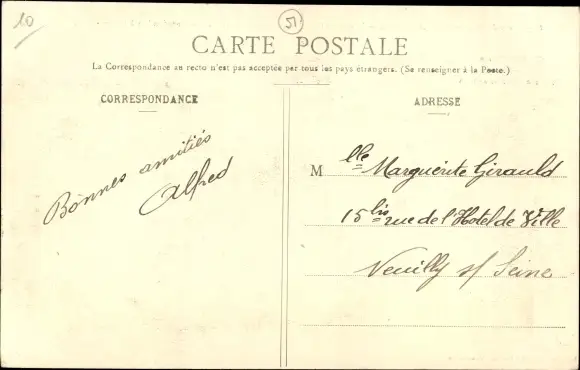 10
51
CARTE POSTALE
La Correspondance au recto n'est pas acceptée par tous les pays étrangers. (Se renseigner à la Poste.)
CORRESPONDANCE
Bonnes amitiés
Alfred
ADRESSE
Mlle Marguerite Girauld
15 bis rue de l'Hotel de Ville
Neuilly s/ Seine